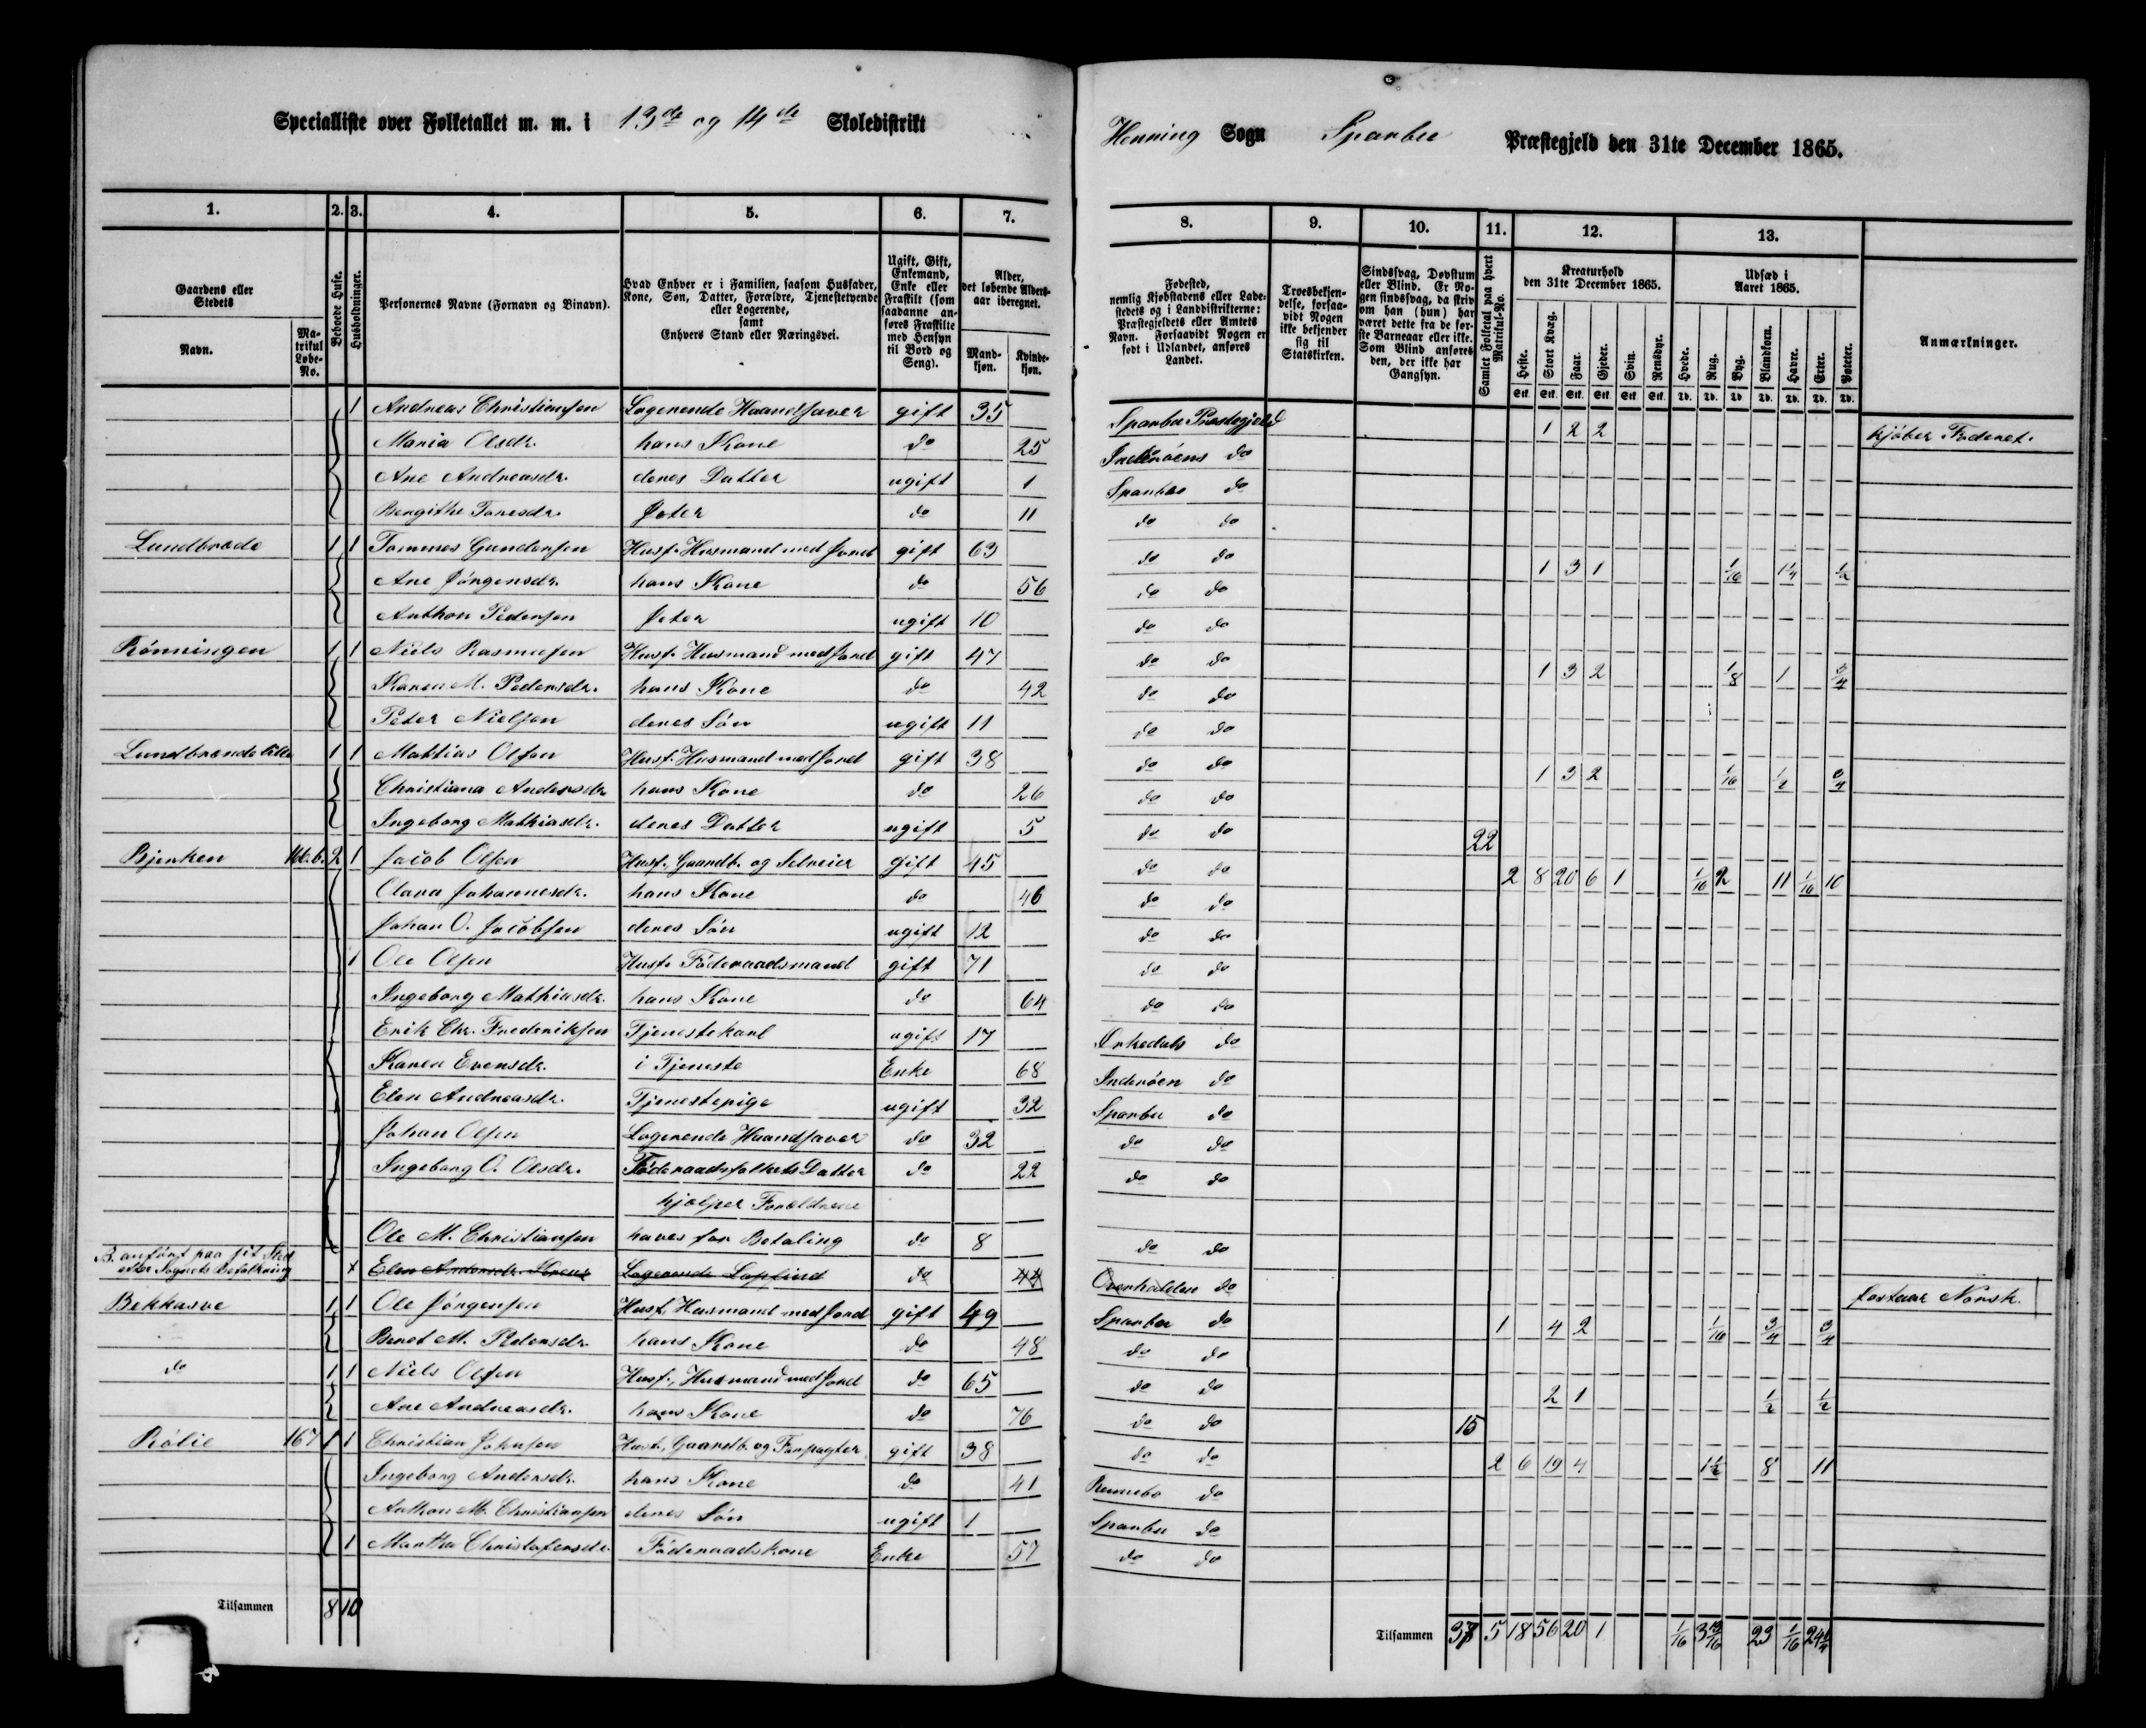 Specialliste over Folketallet m. m. i 13de og 14de Skoledistrikt
Henning Sogn Sparbu Præstegjeld den 31te December 1865.
1. 2. 3. 4. 5. 6. 7. 8. 9. 10. 11. 12. 13.
Gaardens eller Stedets
Navn.
Matrikul Løbe-No.
Beboede Huse.
Husholdninger.
Personernes Navne (Fornavn og Binavn).
Hvad Enhver er i Familien, saasom Husfader, Kone, Søn, Datter, Forældre, Tjenestetyende eller Logerende, samt Enhvers Stand eller Næringsvei.
Ugift, Gift, Enkemand, Enke eller Fraskilt (som saadanne anføres Fraskilte med Hensyn til Bord og Seng).
Alder, det løbende Alders-aar iberegnet.
Mandkjøn. Kvindekjøn.
Fødested, nemlig Kjøbstadens eller Ladestedets og i Landdistrikterne: Præstegjeldets eller Amtets Navn. Forsaavidt Nogen er født i Udlandet, anføres Landet.
Troesbekjendelse, forsaavidt Nogen ikke bekjender sig til Statskirken.
Sindssvag, Døvstum eller Blind. Er Nogen sindssvag, da skriv om han (hun) har været dette fra de første Barneaar eller ikke. Som Blind anføres den, der ikke har Gangsyn.
Samlet Folketal paa hvert Matrikul-No.
Kreaturhold den 31te December 1865.
Heste. Stort Kvæg. Faar. Gjeder. Svin. Rensdyr.
Udsæd i Aaret 1865.
Hvede. Rug. Byg. Blandkorn. Havre. Erter. Poteter.
Anmærkninger.
1 Andreas Christiansen Logerende Haandsaver gift 35 Sparbu Præstegjeld 1 2 2 kjøber Foderet.
Maria Olsdr. hans Kone do 25 Inderøens do
Ane Andreasdr. deres Datter ugift 1 Sparbu do
Bergithe Toresdr. do 11 do do
Lundbrade 1 1 Tommes Gundersen Husf. Husmand med Jord gift 63 do do 1 3 1 1/16 1 1/4 1/2
Ane Jørgensdr. hans Kone do 56 do do
Anthon Pedersen ugift 10 do do
Rønningen 1 1 Niels Rasmusen Husf. Husmand med Jord gift 47 do do 1 3 2 1/8 1 3/4
Karen M. Pedersdr. hans Kone do 42 do do
Peter Nielsen deres Søn ugift 11 do do
Lundbrande 1 1 Mathias Olsen Husf. Husmand med Jord gift 38 do do 1 3 2 1/16 1/2 3/4
Christiana Andersdr hans Kone do 26 do do
Ingeborg Mathiasdr. deres Datter ugift 5 do do 22
Bjerken 2 1 Jacob Olsen Husf., Gaardb. og Selveier gift 45 do do 2 8 20 6 1 1/16 2 11 1/16 10
Olava Johannesdr. hans Kone do 46 do do
Johan O. Jacobsen deres Søn ugift 12 do do
1 Ole Olsen Husf. Føderaadsmand gift 71 do do
Ingeborg Mathiasdr. hans Kone do 64 do do
Erik Chr. Frederiksen Tjenestekarl ugift 17 Orkedals do
Karen Evensdr. i Tjeneste Enke 68 Inderøen do
Elen Andreasdr. Tjenestepige ugift 32 Sparbu do
Johan Olsen Logerende Haandsaver do 32 do do
Ingeborg O. Olsdr. Føderaadsfolkets Datter do 22 do do
hjelper Forældrene
Ole M. Christiansen haves for Betaling do 8 do do
B. anført paa sit Sted
efter Sognets Befolkning x Elen Andersdr. Logerende do 44 Overhalden do forstaar Norsk.
Bekkasve 1 1 Ole Jørgensen Husf., Husmand med Jord gift 49 Sparbu do 1 4 2 1/16 3/4 3/4
Beret M. Pedersdr. hans Kone do 48 do do
do 1 1 Niels Olsen Husf., Husmand med Jord do 65 do do 2 1 1/2 1/2
Ane Andreasdr. hans Kone do 76 do do 15
Rølie 167 1 1 Christian Johnsen Husf., Gaardb. og Forpagter gift 38 do do 2 6 19 4 1 1/2 8 11
Ingeborg Andersdr. hans Kone do 41 Rennebo do
Anthon M. Christiansen deres Søn ugift 1 Sparbu do
1 Martha Christofersdr. Føderaadskone Enke 57 do do
Tilsammen 8 10
Tilsammen 37 5 18 56 20 1 1/16 3 23 1/16 24